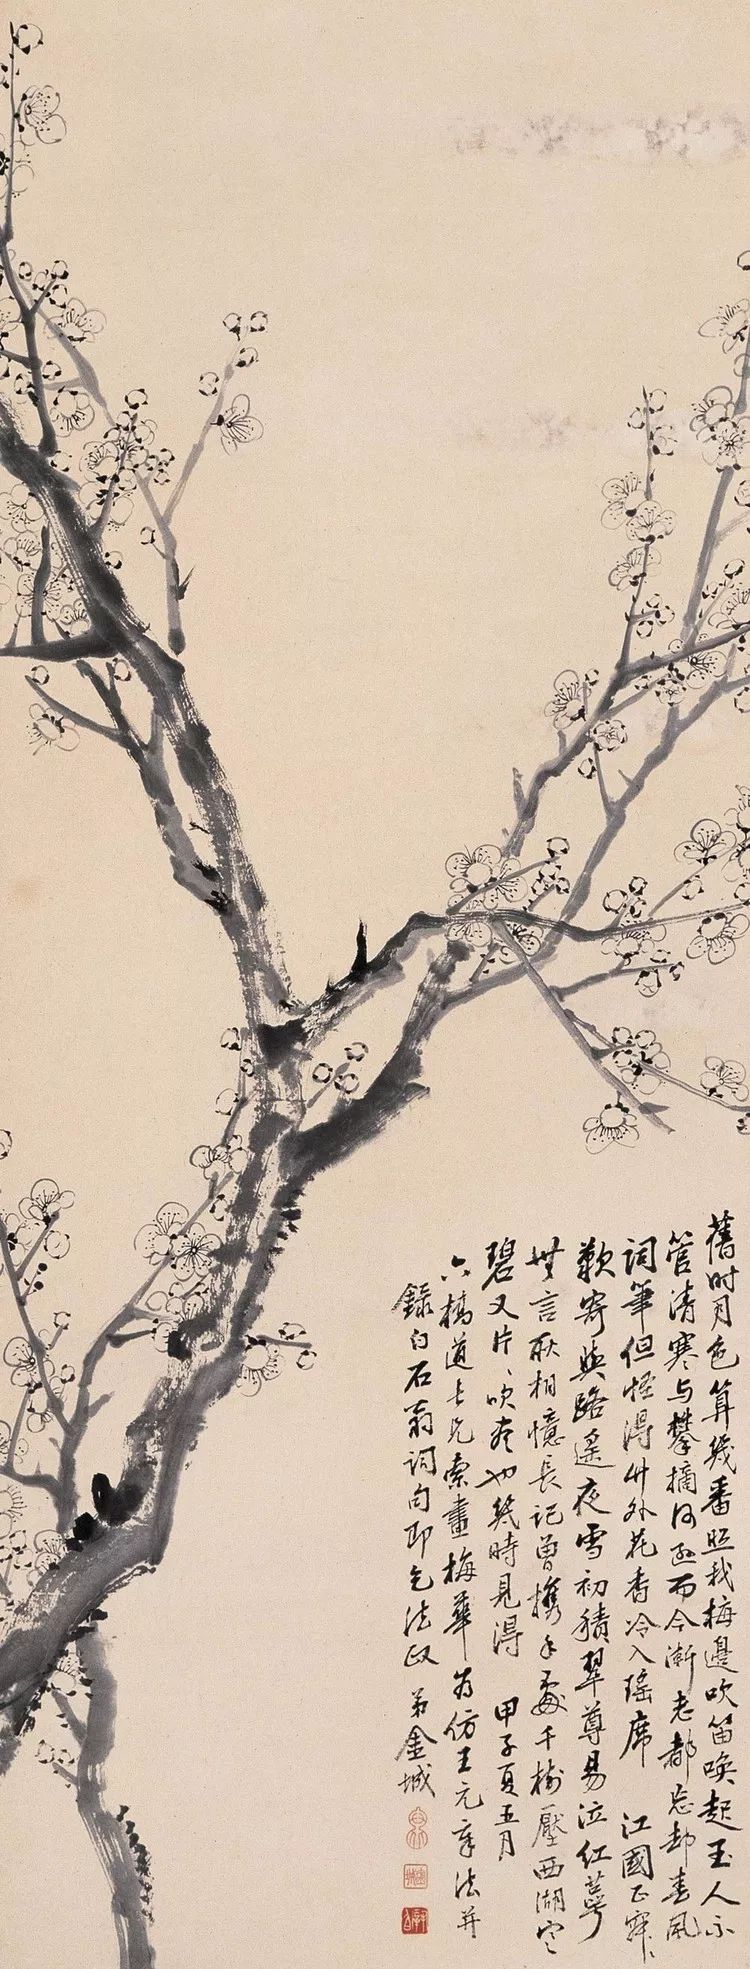 舊時月色算幾番照我梅邊吹笛喚起玉人不
管清寒与攀摘何遜而今漸老都忘却春風
詞筆但怪得竹外花香冷入瑤席 江國正寂〻
歎寄與路遙夜雪初積翠尊易泣紅萼
無言耿相憶長記曾攜手處千樹壓西湖寒
碧又片〻吹盡也幾時見得 甲子夏五月
六橋道長兄索畫梅華為仿王元章法并
錄白石翁詞句即乞法政 弟金城